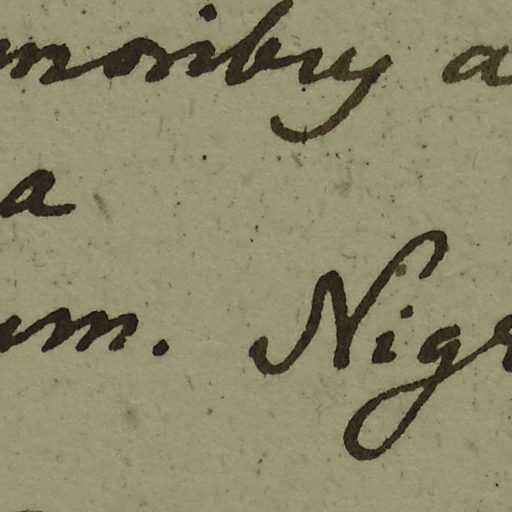 moribus a
a
um. Nigr